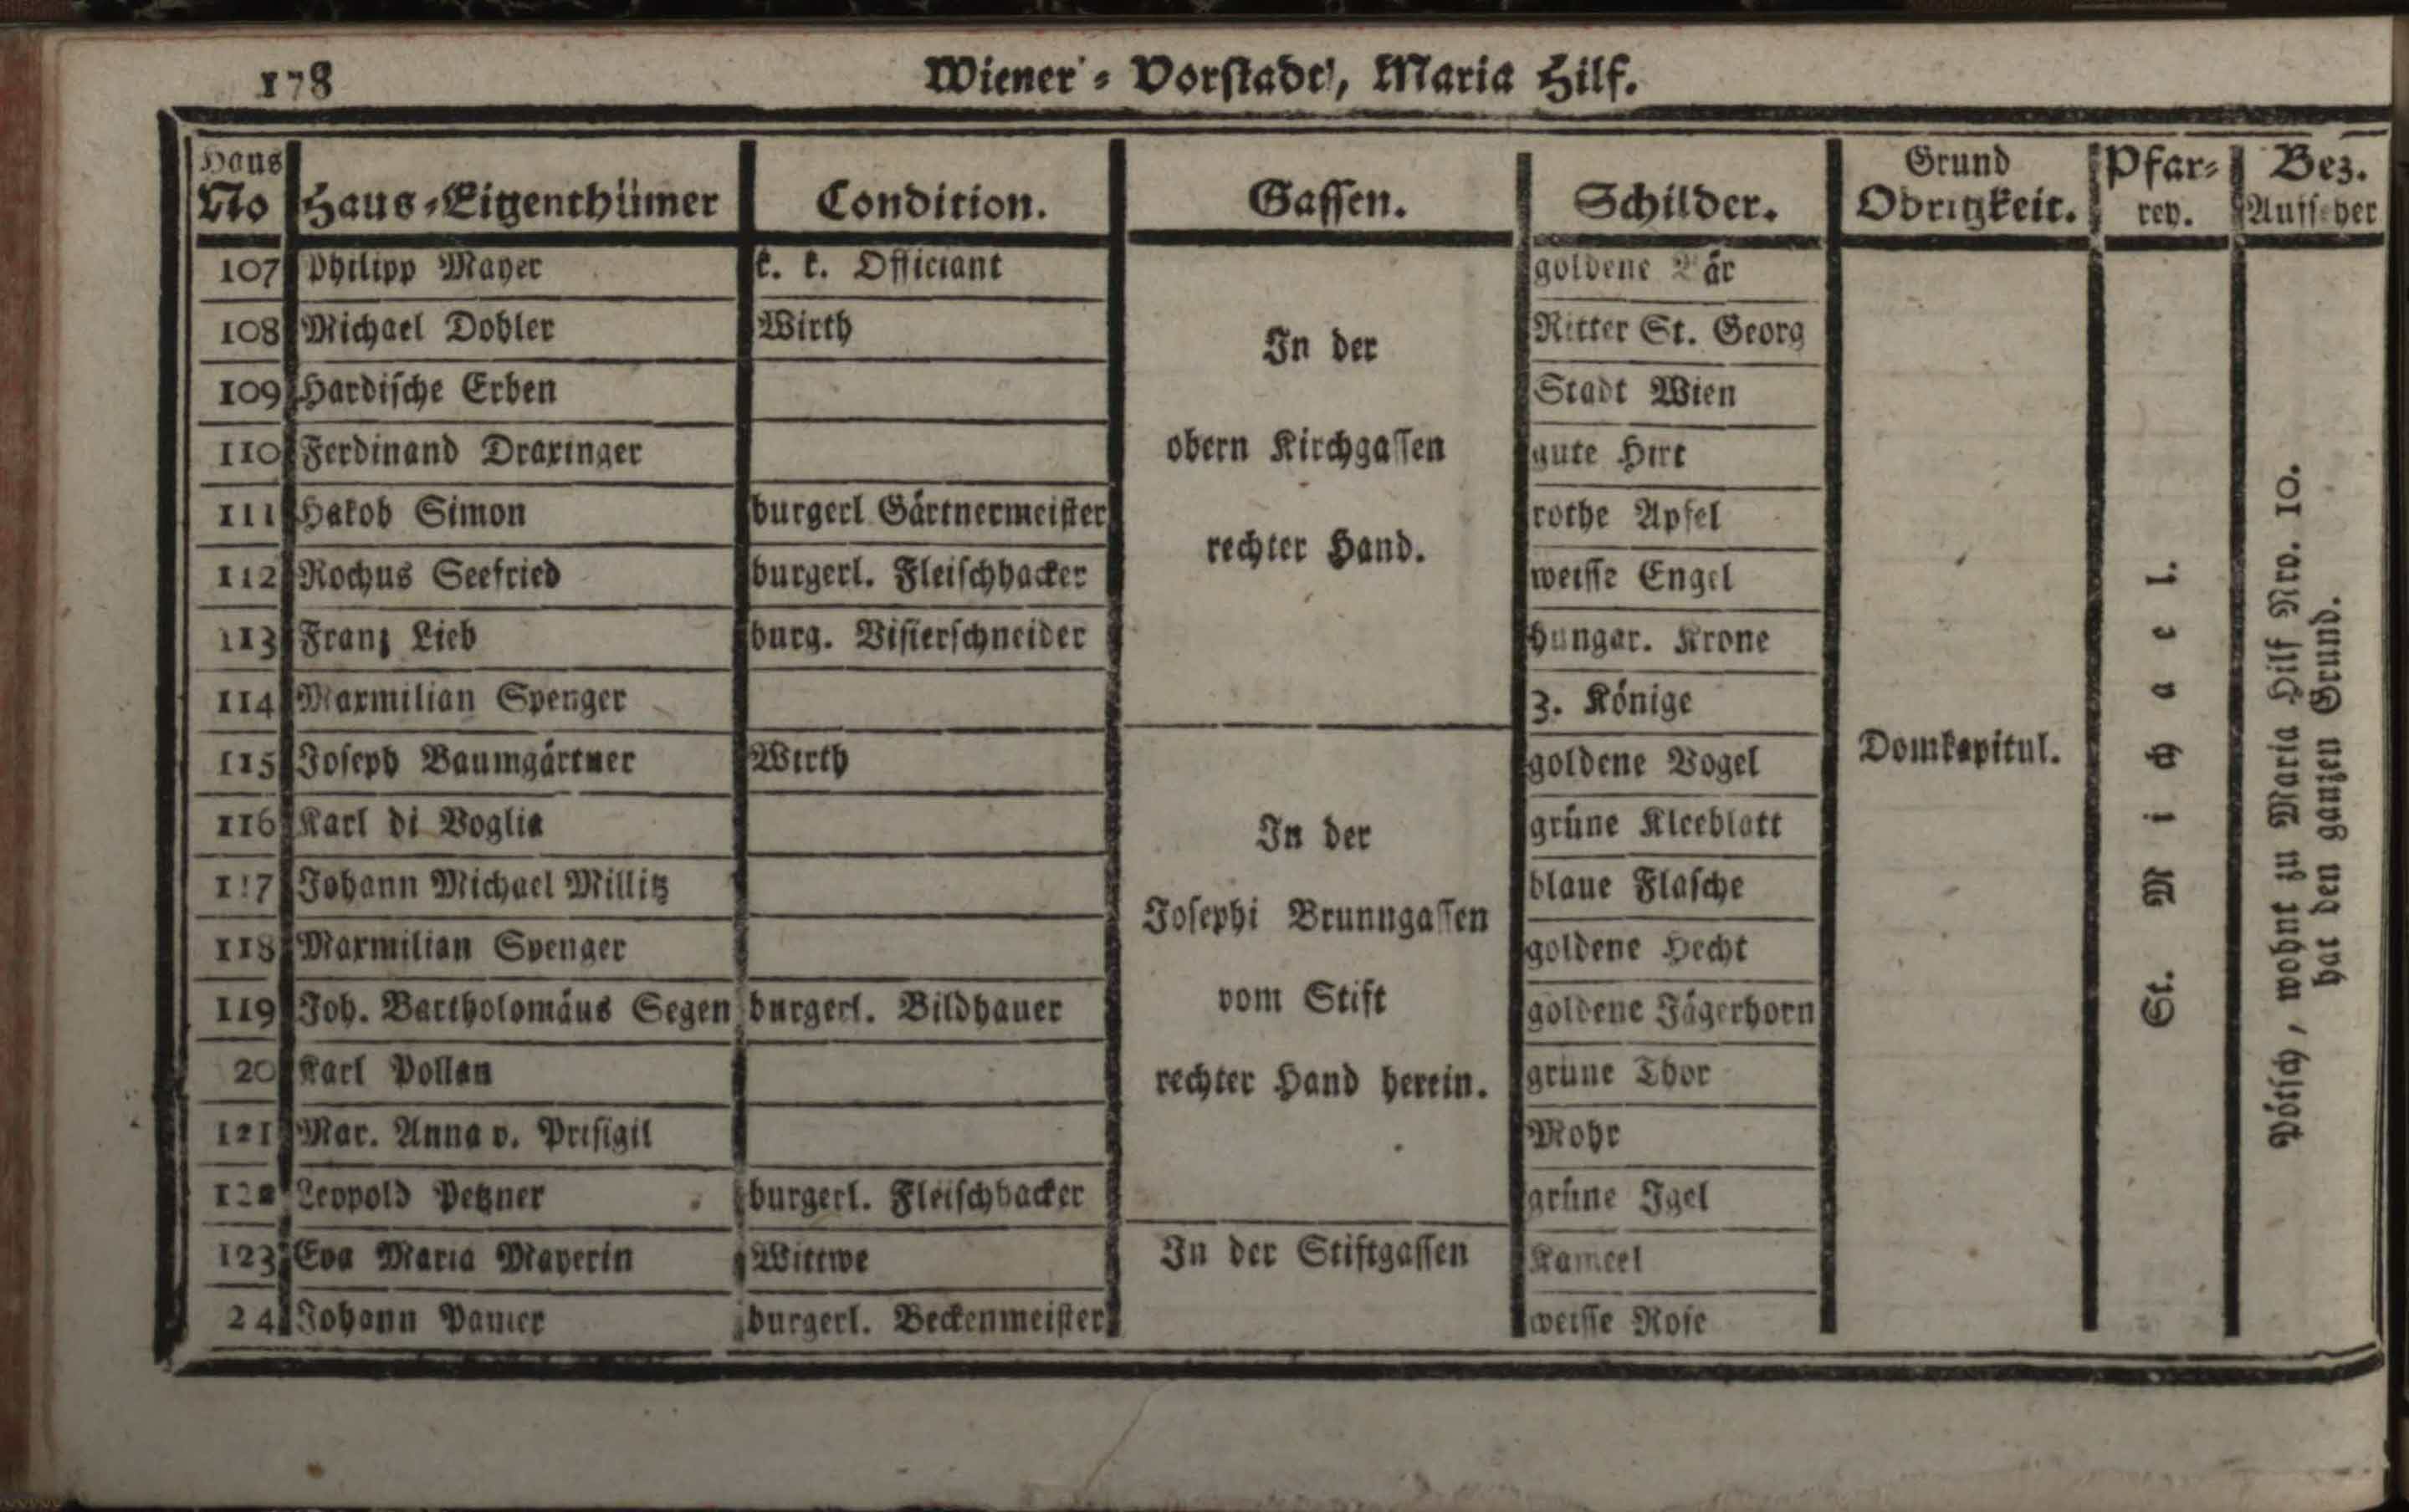 178
Wiener-Vorstadt, Maria Hilf.
Haus No | Haus-Eigenthümer | Condition. | Gassen. | Schilder. | Grund Obrigkeit. | Pfar-rey. | Bez. Aufseher
107 | Philipp Mayer | k. k. Officiant | goldene Bär
108 | Michael Dobler | Wirth | Ritter St. Georg
109 | Hardische Erben | Stadt Wien
110 | Ferdinand Draxinger | gute Hirt
111 | Hakob Simon | burgerl Gärtnermeister | rothe Apfel
112 | Rochus Seefried | burgerl. Fleischhacker | weisse Engel
113 | Franz Lieb | burg. Visierschneider | hungar. Krone
114 | Maxmilian Spenger | 3. Könige
In der
obern Kirchgassen
rechter Hand.
115 | Joseph Baumgärtner | Wirth | goldene Vogel
116 | Karl di Voglia | grüne Kleeblatt
117 | Johann Michael Millitz | blaue Flasche
118 | Maxmilian Spenger | goldene Hecht
119 | Joh. Bartholomäus Segen | burgerl. Bildhauer | goldene Jägerhorn
20 | Karl Pollan | grüne Thor
121 | Mar. Anna v. Prisigil | Mohr
122 | Leopold Petzner | burgerl. Fleischhacker | grüne Igel
In der
Josephi Brunngassen
vom Stift
rechter Hand herein.
123 | Eva Maria Mayerin | Wittwe | Kameel
24 | Johann Pamer | burgerl. Beckenmeister | weisse Rose
In der Stiftgassen
Domkapitul.
St. Michael.
Pötsch, wohnt zu Maria Hilf Nro. 10.
hat den ganzen Grund.